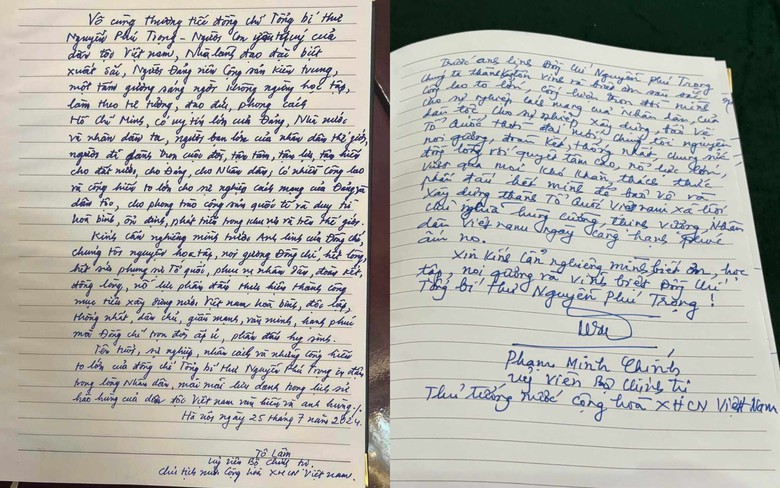 Vô cùng thương tiếc đồng chí Tổng bí thư
Nguyễn Phú Trọng - Người con yêu quý của
dân tộc Việt Nam, Nhà lãnh đạo đặc biệt
xuất sắc, Người Đảng viên Cộng sản kiên trung,
một tấm gương sáng ngời không ngừng học tập,
làm theo tư tưởng, đạo đức, phong cách
Hồ Chí Minh, có uy tín lớn của Đảng, Nhà nước
và nhân dân ta, người bạn lớn của nhân dân thế giới,
người đã dành trọn cuộc đời, tận tâm, tận lực, tận hiến
cho đất nước, cho Đảng, cho Nhân dân; có nhiều công lao
và cống hiến to lớn cho sự nghiệp cách mạng của Đảng và
dân tộc, cho phong trào cộng sản quốc tế và duy trì
hoà bình, ổn định, phát triển trong khu vực và trên thế giới.
Kính cẩn nghiêng mình trước Anh linh của Đồng chí,
chúng tôi nguyện học tập, noi gương Đồng chí, hết lòng,
hết sức phụng sự Tổ quốc, phục vụ nhân dân, đoàn kết,
đồng lòng, nỗ lực phấn đấu thực hiện thành công
mục tiêu xây dựng nước Việt Nam hoà bình, độc lập,
thống nhất, dân chủ, giàu mạnh, văn minh, hạnh phúc
mà Đồng chí trọn đời ấp ủ, phấn đấu hy sinh.
Tên tuổi, sự nghiệp, nhân cách và những cống hiến
to lớn của đồng chí Tổng bí thư Nguyễn Phú Trọng in đậm
trong lòng Nhân dân, mãi mãi lưu danh trong lịch sử
hào hùng của dân tộc Việt Nam văn hiến và anh hùng./.
Hà Nội, ngày 25 tháng 7 năm 2024.
Tô Lâm
Uỷ viên Bộ Chính trị
Chủ tịch nước Cộng hoà XHCN Việt Nam.
Trước anh linh Đồng Chí Nguyễn Phú Trọng
Chúng ta thành kính vinh và biết ơn sâu sắc
công lao to lớn, cống hiến trọn đời mình
cho sự nghiệp cách mạng của nhân dân, của
dân tộc. Cho sự nghiệp xây dựng, bảo vệ
Tổ Quốc thời đại mới; Chúng tôi nguyện
noi gương, đoàn kết, thống nhất, chung sức
đồng lòng với quyết tâm cao, nỗ lực lớn,
vượt qua mọi khó khăn, thách thức
phấn đấu hết mình để bảo vệ và
xây dựng thành Tổ Quốc Việt Nam xã hội
chủ nghĩa hùng cường, thịnh vượng, Nhân
dân Việt Nam ngày càng hạnh phúc
ấm no.
Xin kính cẩn nghiêng mình biết ơn, học
tập, noi gương và vĩnh biệt Đồng Chí
Tổng bí thư Nguyễn Phú Trọng!
Phạm Minh Chính
Uỷ viên Bộ Chính trị
Thủ tướng nước Cộng hoà XHCN Việt Nam